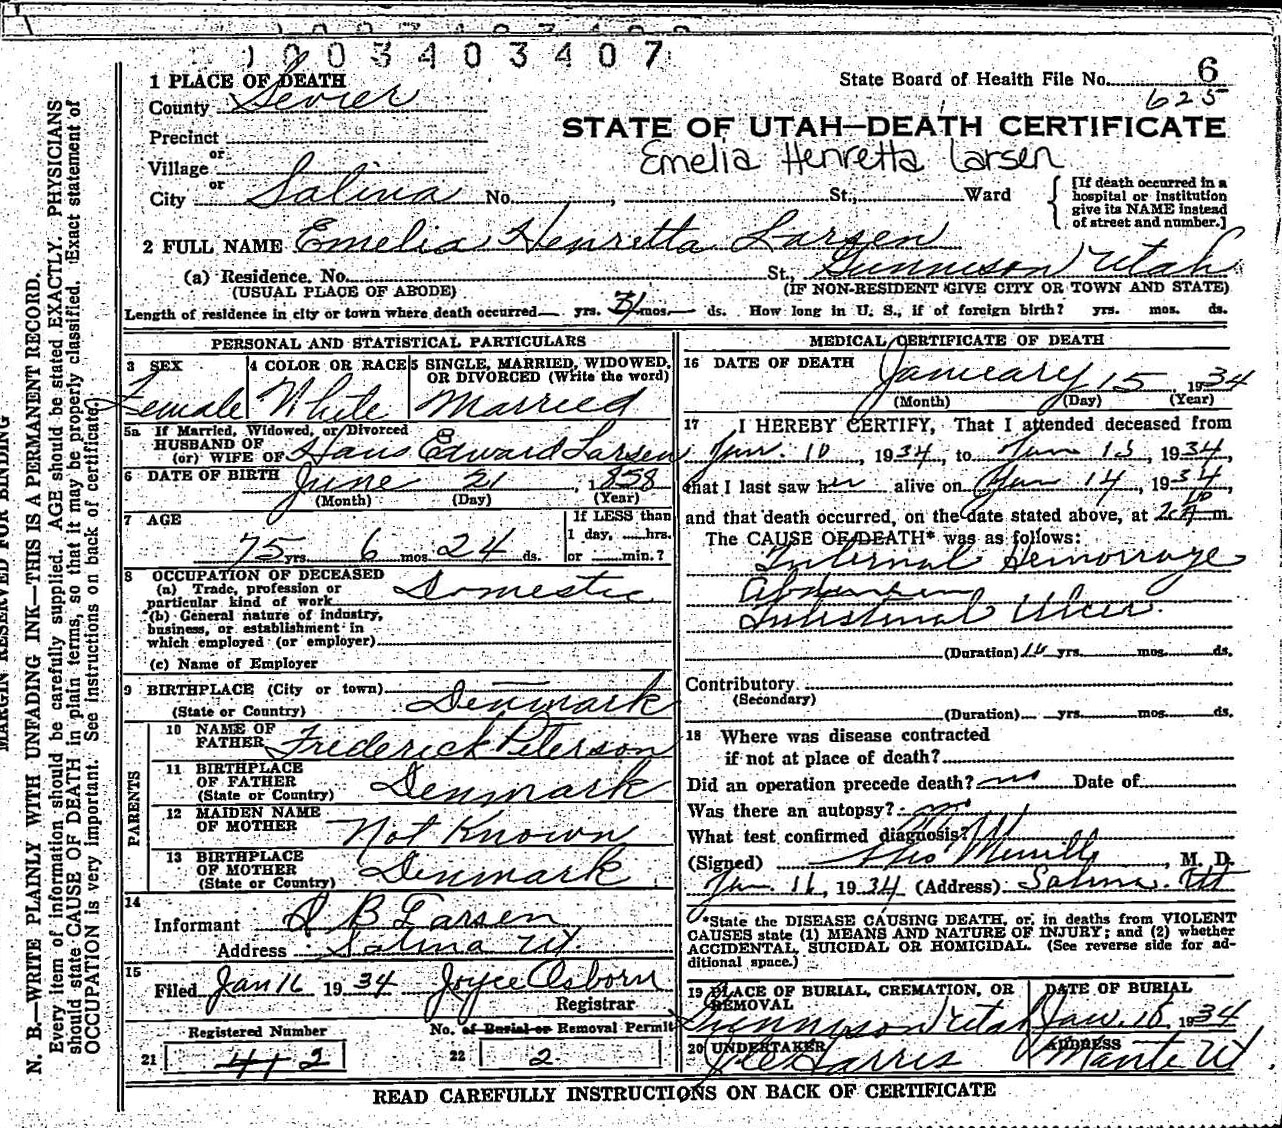 1003403407
1 PLACE OF DEATH
State Board of Health File No. 6
County Sevier
625
Precinct
STATE OF UTAH—DEATH CERTIFICATE
or
Village
Emelia Henretta Larsen
or
City Salina No. St., Ward
[If death occurred in a
hospital or institution
give its NAME instead
of street and number.]
2 FULL NAME Emelia Henretta Larsen
(a) Residence. No. St., Gunnison Utah
(USUAL PLACE OF ABODE) (IF NON-RESIDENT GIVE CITY OR TOWN AND STATE)
Length of residence in city or town where death occurred yrs. mos. ds. How long in U. S., if of foreign birth? yrs. mos. ds.
PERSONAL AND STATISTICAL PARTICULARS
3 SEX 4 COLOR OR RACE 5 SINGLE, MARRIED, WIDOWED,
OR DIVORCED (Write the word)
Female White Married
5a If Married, Widowed, or Divorced
HUSBAND OF
(or) WIFE OF Hans Edward Larsen
6 DATE OF BIRTH June 21, 1858
(Month) (Day) (Year)
7 AGE If LESS than
1 day, hrs.
75 yrs. 6 mos. 24 ds. or min.?
8 OCCUPATION OF DECEASED
(a) Trade, profession or
particular kind of work Domestic
(b) General nature of industry,
business, or establishment in
which employed (or employer)
(c) Name of Employer
9 BIRTHPLACE (City or town)
(State or Country) Denmark
PARENTS
10 NAME OF
FATHER Frederick Peterson
11 BIRTHPLACE
OF FATHER
(State or Country) Denmark
12 MAIDEN NAME
OF MOTHER Not Known
13 BIRTHPLACE
OF MOTHER
(State or Country) Denmark
14
Informant B Larsen
Address Salina Ut.
15
Filed Jan 16 1934 Joyce Osborn
Registrar
Registered Number No. of Burial or Removal Permit
21 412 22 2
MEDICAL CERTIFICATE OF DEATH
16 DATE OF DEATH January 15, 1934
(Month) (Day) (Year)
17 I HEREBY CERTIFY, That I attended deceased from
Jan. 10, 1934, to Jan 15, 1934,
that I last saw her alive on Jan 14, 1934,
and that death occurred, on the date stated above, at m.
The CAUSE OF DEATH* was as follows:
Internal Hemorrage
Intestinal Ulcer
(Duration) yrs. mos. ds.
Contributory
(Secondary)
(Duration) yrs. mos. ds.
18 Where was disease contracted
if not at place of death?
Did an operation precede death? no Date of
Was there an autopsy? no
What test confirmed diagnosis?
(Signed) Merrill, M. D.
Jan. 16, 1934 (Address) Salina. Ut
*State the DISEASE CAUSING DEATH, or, in deaths from VIOLENT
CAUSES state (1) MEANS AND NATURE OF INJURY; and (2) whether
ACCIDENTAL, SUICIDAL OR HOMICIDAL. (See reverse side for ad-
ditional space.)
19 PLACE OF BURIAL, CREMATION, OR DATE OF BURIAL
REMOVAL
Gunnyson Utah Jan. 18 1934
20 UNDERTAKER ADDRESS
Harris Mante Ut
READ CAREFULLY INSTRUCTIONS ON BACK OF CERTIFICATE
MARGIN RESERVED FOR BINDING
N. B.—WRITE PLAINLY WITH UNFADING INK—THIS IS A PERMANENT RECORD.
Every item of information should be carefully supplied. AGE should be stated EXACTLY. PHYSICIANS
should state CAUSE OF DEATH in plain terms, so that it may be properly classified. Exact statement of
OCCUPATION is very important. See instructions on back of certificate.